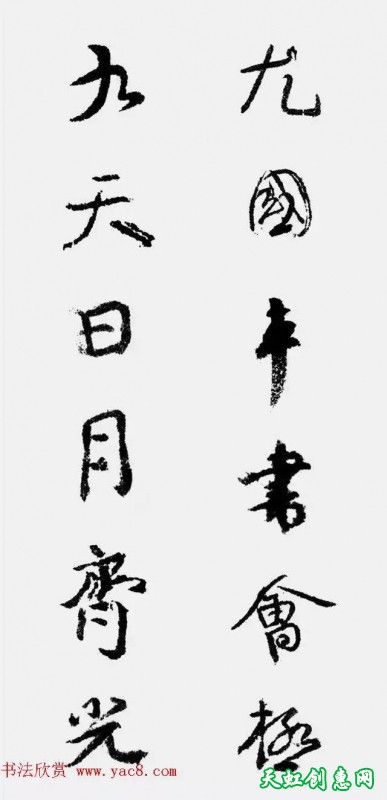 國車書會極
九天日月齊光
书法欣赏 www.yac8.com
天虹创惠网